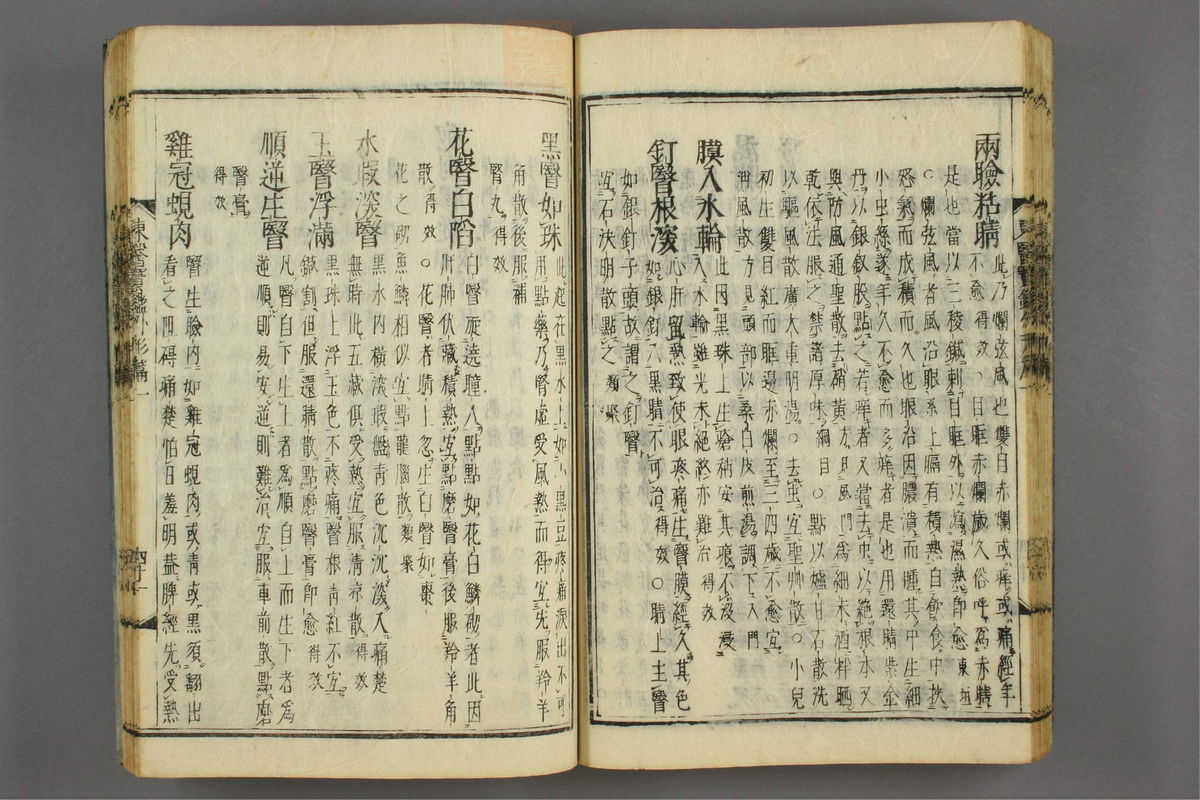 兩瞼粘睛此乃爛弦風也雙目赤爛或痒或痛經年
不愈得效○目眶赤爛歲久俗呼爲赤瞎
是也當以三稜鍼刺目眶外以瀉濕熱卽愈東垣
○爛弦風者風沿眼系上膈有積熱自飲食中挾
怒氣而成積而久也眼沿因膿潰而腫其中生細
小虫絲遂年久不愈而多痒者是也用還睛紫金
丹以銀釵股點之若痒者又當去虫以絶根本又
與防風通聖散去硝黃爲細末酒拌晒
乾依法服之禁諸厚味綱目○點以爐甘石散洗
以驅風散廣大重明湯○去虫宜聖艸散○小兒
初生雙目紅而眶邊赤爛至三四歲不愈宜
消風散方見頭部以桑白皮煎湯調下入門
膜入水輪此因黑珠上生瘡稍安其痕不沒浸
入水輪雖光未絶終亦難治得效
釘瞖根深心肝留熱致使眼疼痛生瞖膜經久其色
如銀釘入黑睛不可治得效○睛上生瞖
如銀釘子頭故謂之釘瞖
宜石決明散點之類聚
黑瞖如珠此起在黑水上如小黑豆疼痛淚出不可
用點藥乃腎虛受風熱而得宜先服羚羊
角散後服補
腎丸得效
花瞖白陷白瞖旋遶瞳人點點如花白鱗砌者此因
肝肺伏藏積熱宜點磨瞖膏後服羚羊角
散得效○花瞖者睛上忽生白瞖如棗
花之砌魚鱗相似宜點龍腦散類聚
水瑕深瞖黑水內橫深瑕盤靑色沉沉深入痛楚
無時此五藏俱受熱宜服淸凉散得效
玉瞖浮滿黑珠上浮玉色不疼痛瞖根靑紅不宜
鍼割但服還睛散點磨瞖膏卽愈得效
順逆生瞖凡瞖自下生上者爲順自上而生下者爲
逆順則易安逆則難治宜服車前散點磨
瞖膏
得效
雞冠蜆肉瞖生瞼內如雞冠蜆肉或靑或黑須翻出
看之阻碍痛楚怕日羞明蓋脾經先受熱
東醫寶鑑外形篇一